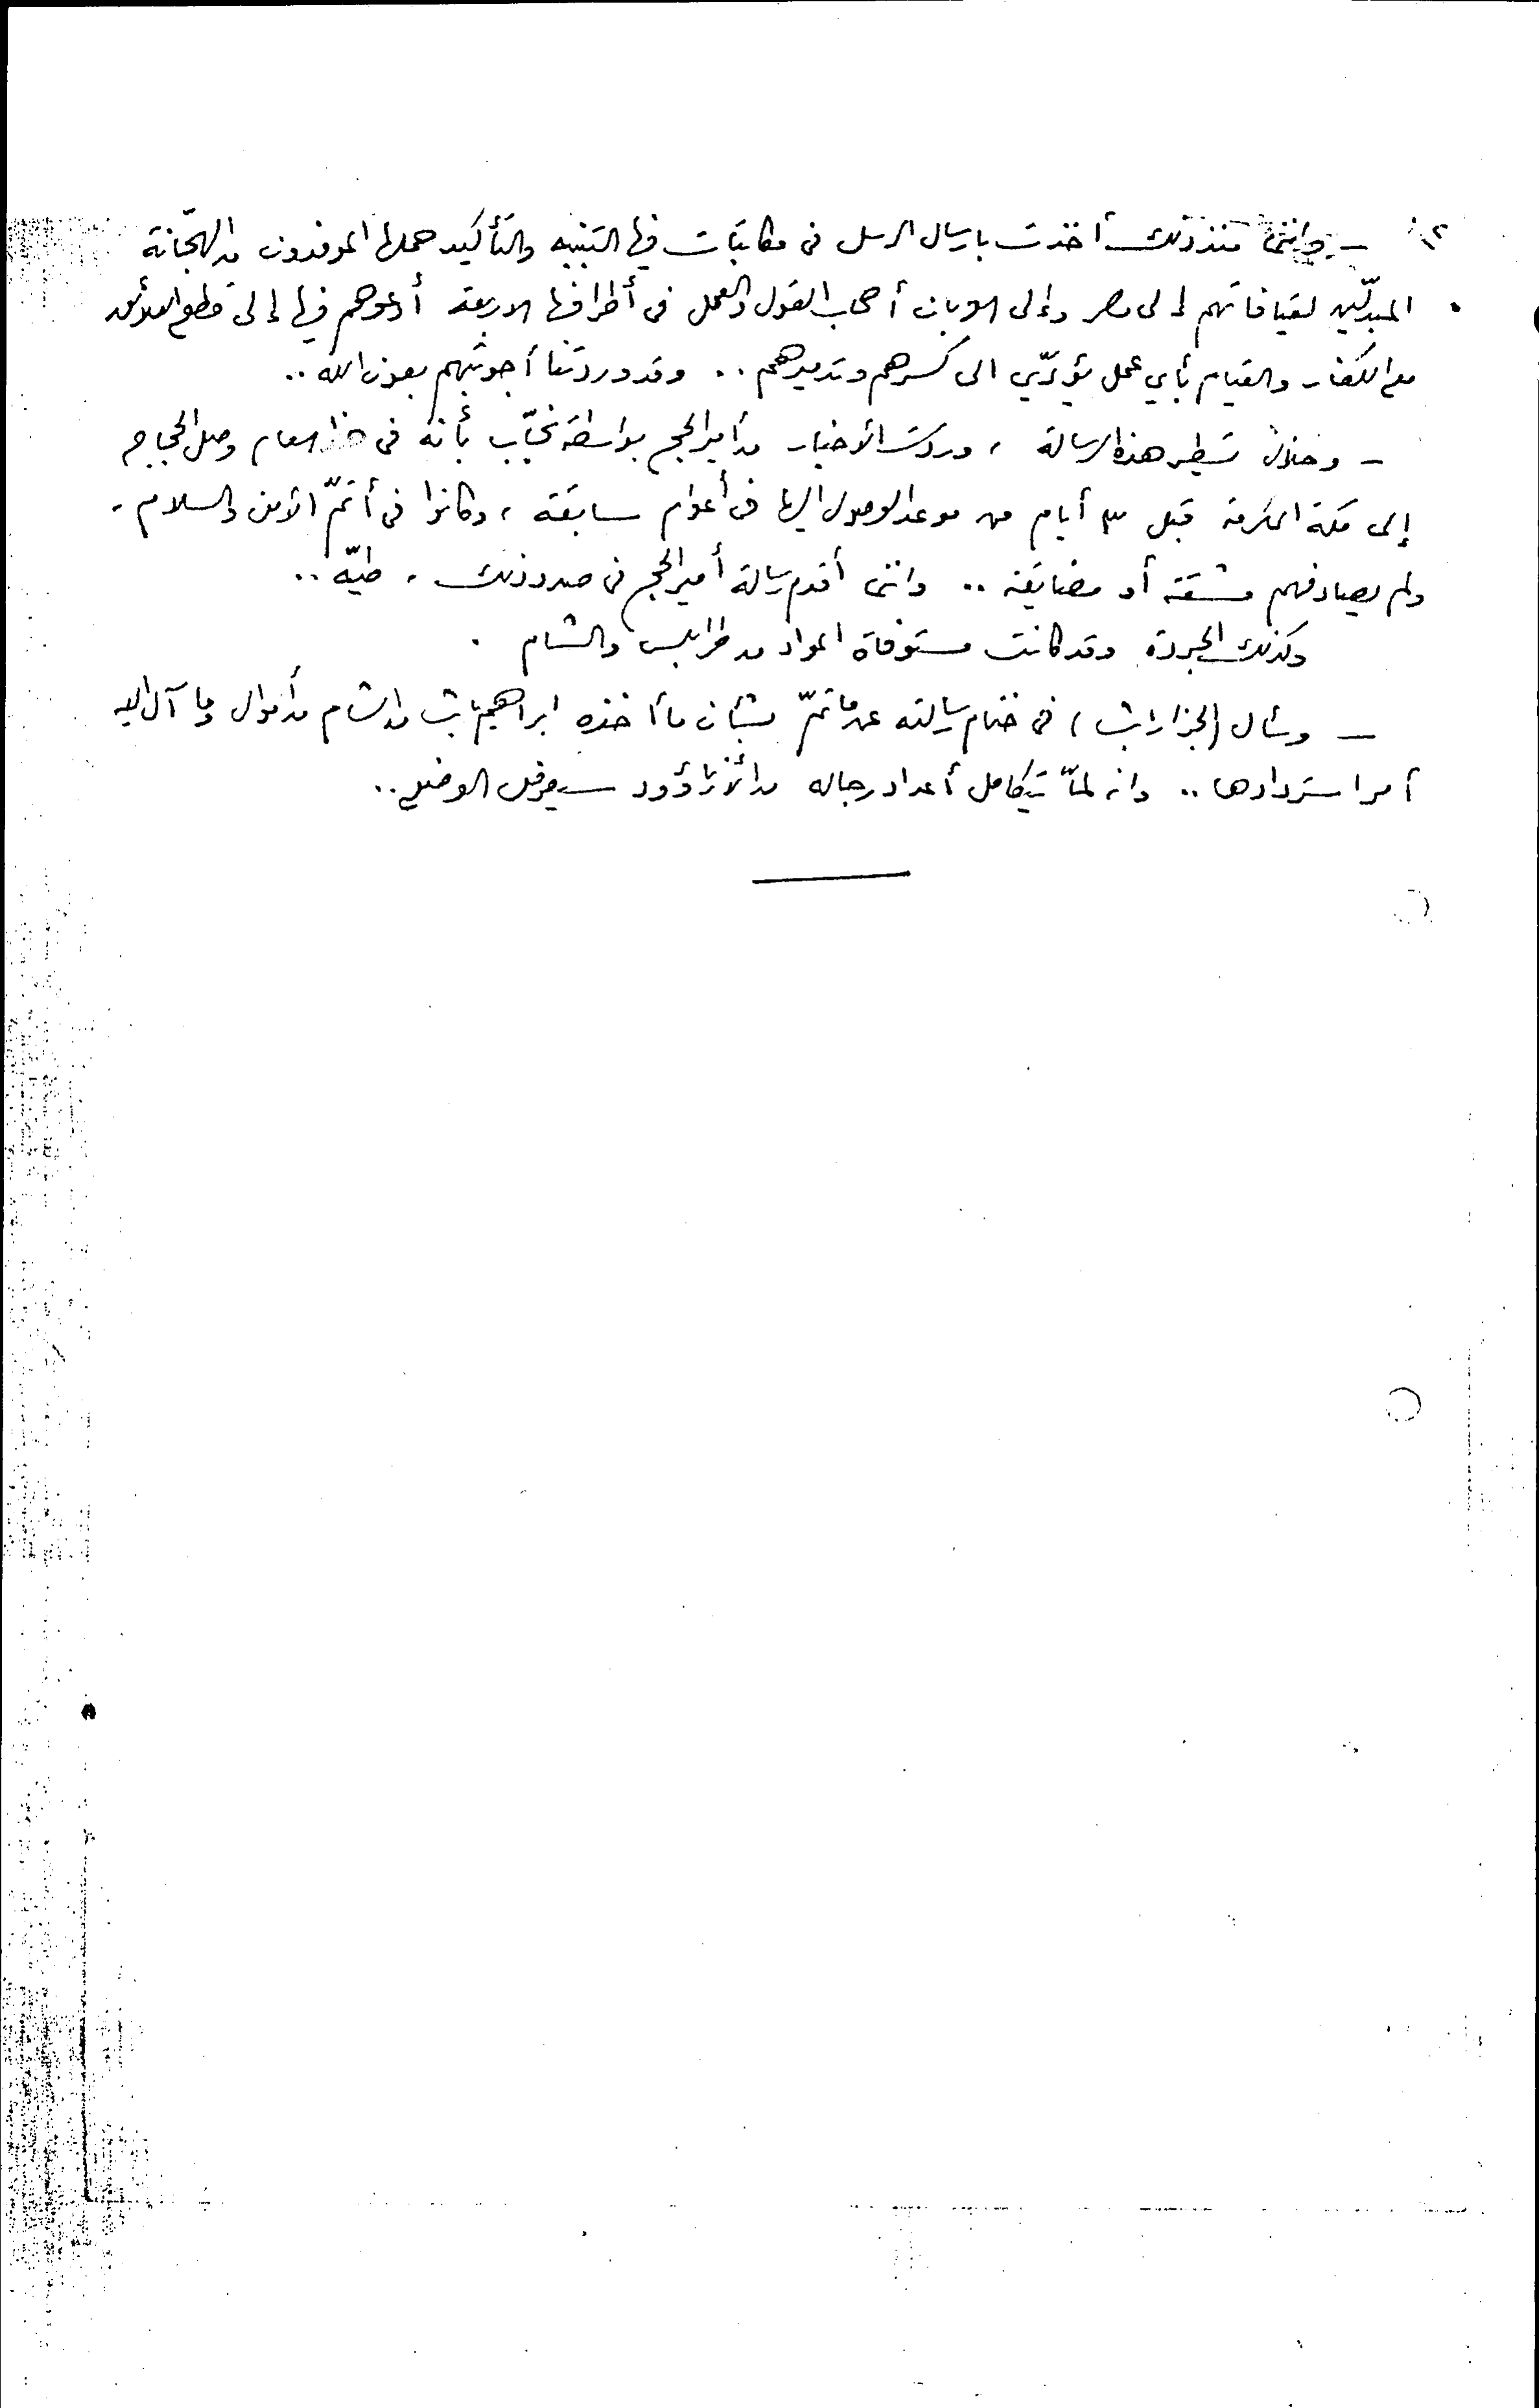 - وإنني منذ ذلك أخذت بارسال الرسل في مكاتبات فيها التنبيه والتأكيد حملها الموفدون من الهجّانة
المبدّلين لقيافاتهم إلى مصر وإلى العربان أصحاب القول والعمل في أطرافها الاربعة أدعوهم فيها إلى قطع العلائق
مع الكفار والقيام بأي عمل يؤدّي الى كسرهم وتدميرهم .. وقد وردتنا أجوبتهم بعون الله ..
- وخلال تسطير هذه الرسالة ، وردت الأخبار من أمير الحج بواسطة نجّاب بأنه في هذا العام وصل الحجاج
إلى مكة المكرمة قبل ٣ أيام من موعد الوصول اليها في أعوام سابقة ، وكانوا في أتمّ الأمن والسلام .
ولم يصادفهم مشقة أو مضايقة .. وانني أقدم رسالة أمير الحج في صدد ذلك ، طيّه ..
وكذلك الجردة وقد كانت مستوفاة المواد من طرابلس والشام .
- وسأل (الجزار باشا) في ختام رسالته عن ما تمّ بشأن ما أخذه ابراهيم باشا من الشام من أموال وما آل اليه
أمر استردادها .. وانه لمّا تتكامل أعداد رجاله من الأرناؤود سيعرض الوضع ..